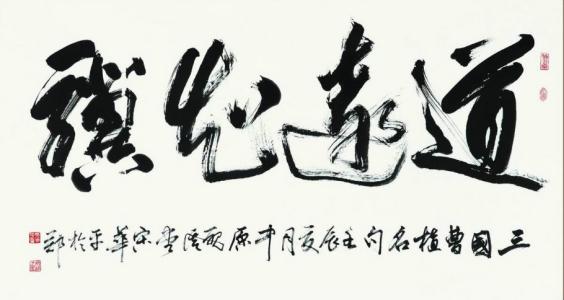 道遠知驥
三國曹植名句壬辰夏月中原宋華平於鄭